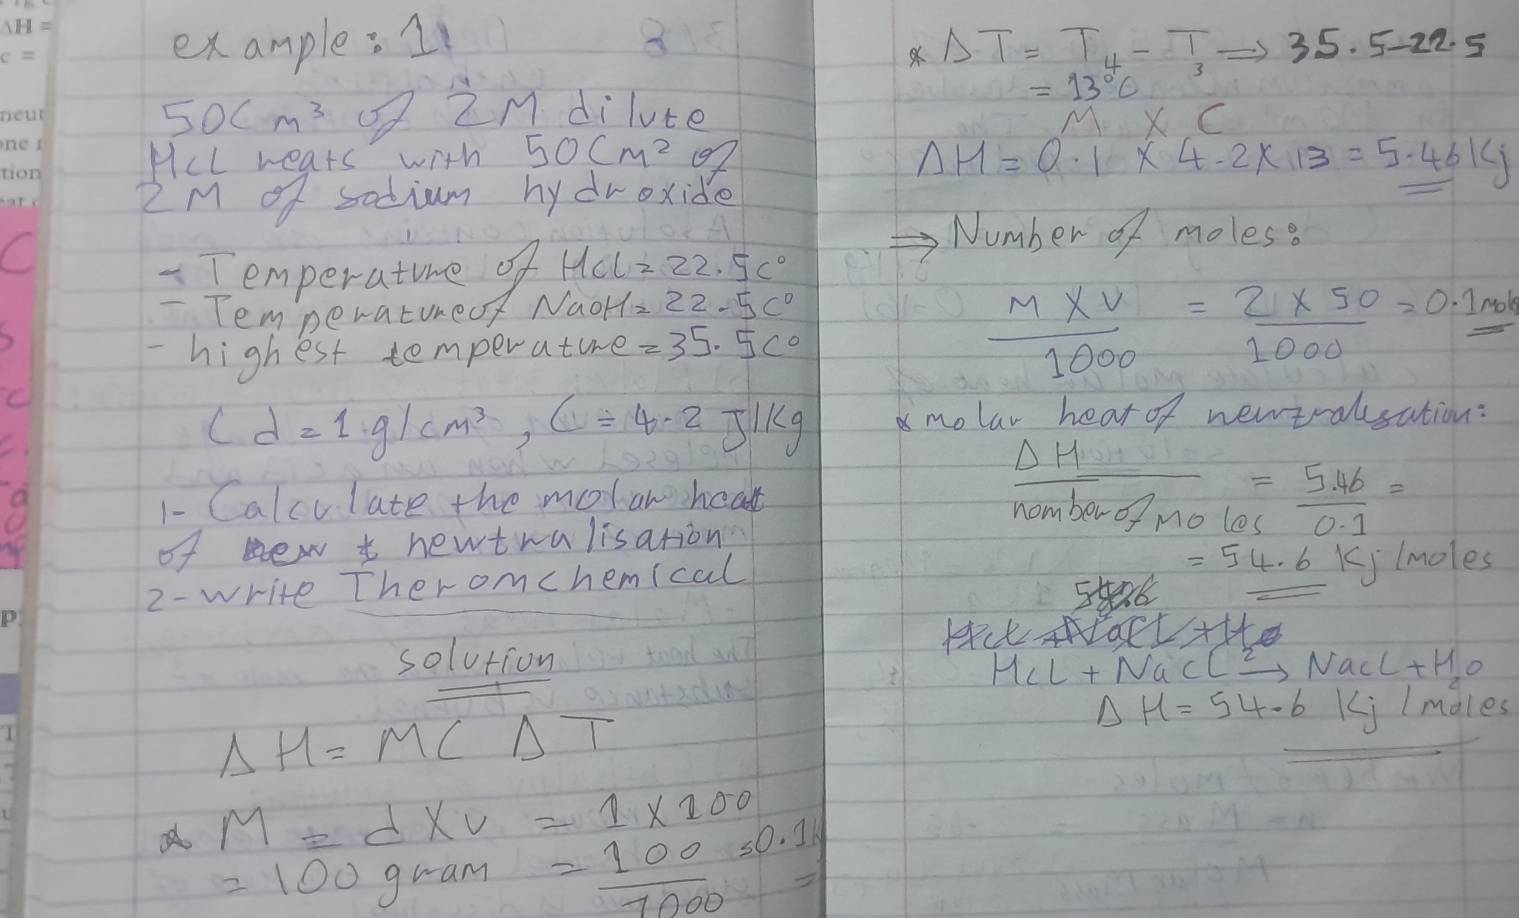 example: 1
50Cm³ of 2M dilute
HCL reats with 50Cm² of
2M of sodium hydroxide
- Temperature of HCL = 22.5C°
- Temperature of NaOH = 22.5C°
- highest temperature = 35.5C°
( d = 1 g/cm³, C = 4.2 J/Kg
1- Calculate the molar heat
of newtralisation
2- write Theromchemical
solution
ΔH = MC ΔT
* M = d X v = 1 X 100
= 100 gram = 100/1000 = 0.1k
* ΔT = T4 - T3 ⇒ 35.5-22.5
= 13°C
M X C
ΔH = 0.1 X 4.2 X 13 = 5.46 Kj
⇒ Number of moles:
M X V / 1000 = 2 X 50 / 1000 = 0.1 mole
* molar heat of newtralisation:
ΔH / nomber of Moles = 5.46 / 0.1 =
= 54.6 Kj /moles
HCL + NaCL → NaCL + H₂O
ΔH = 54.6 Kj / moles
ΔH =
c =
neut
one r
tion